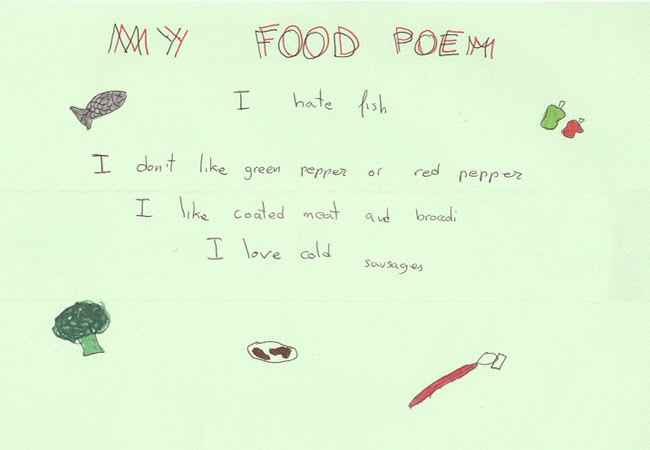 MY FOOD POEM
I hate fish
I don't like green pepper or red pepper
I like coated meat and broccoli
I love cold sausages